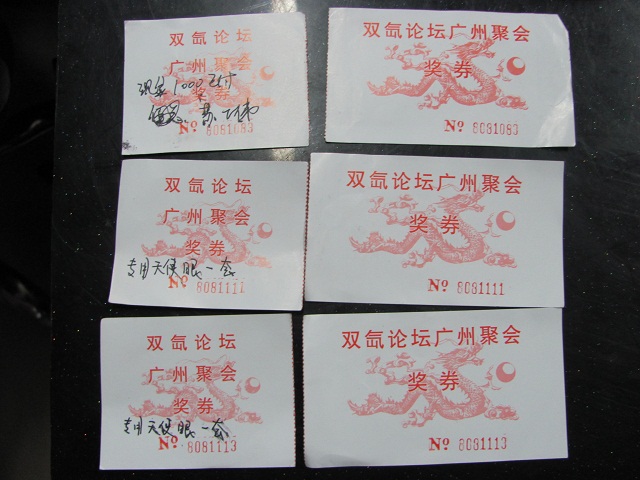 双氙论坛
广州聚会
现金1000元
奖券
Nº 8081083
双氙论坛广州聚会
奖券
Nº 8081083
双氙论坛
广州聚会
奖券
专用天使眼一套
Nº 8081111
双氙论坛广州聚会
奖券
Nº 8081111
双氙论坛
广州聚会
奖券
专用天使眼一套
Nº 8081113
双氙论坛广州聚会
奖券
Nº 8081113